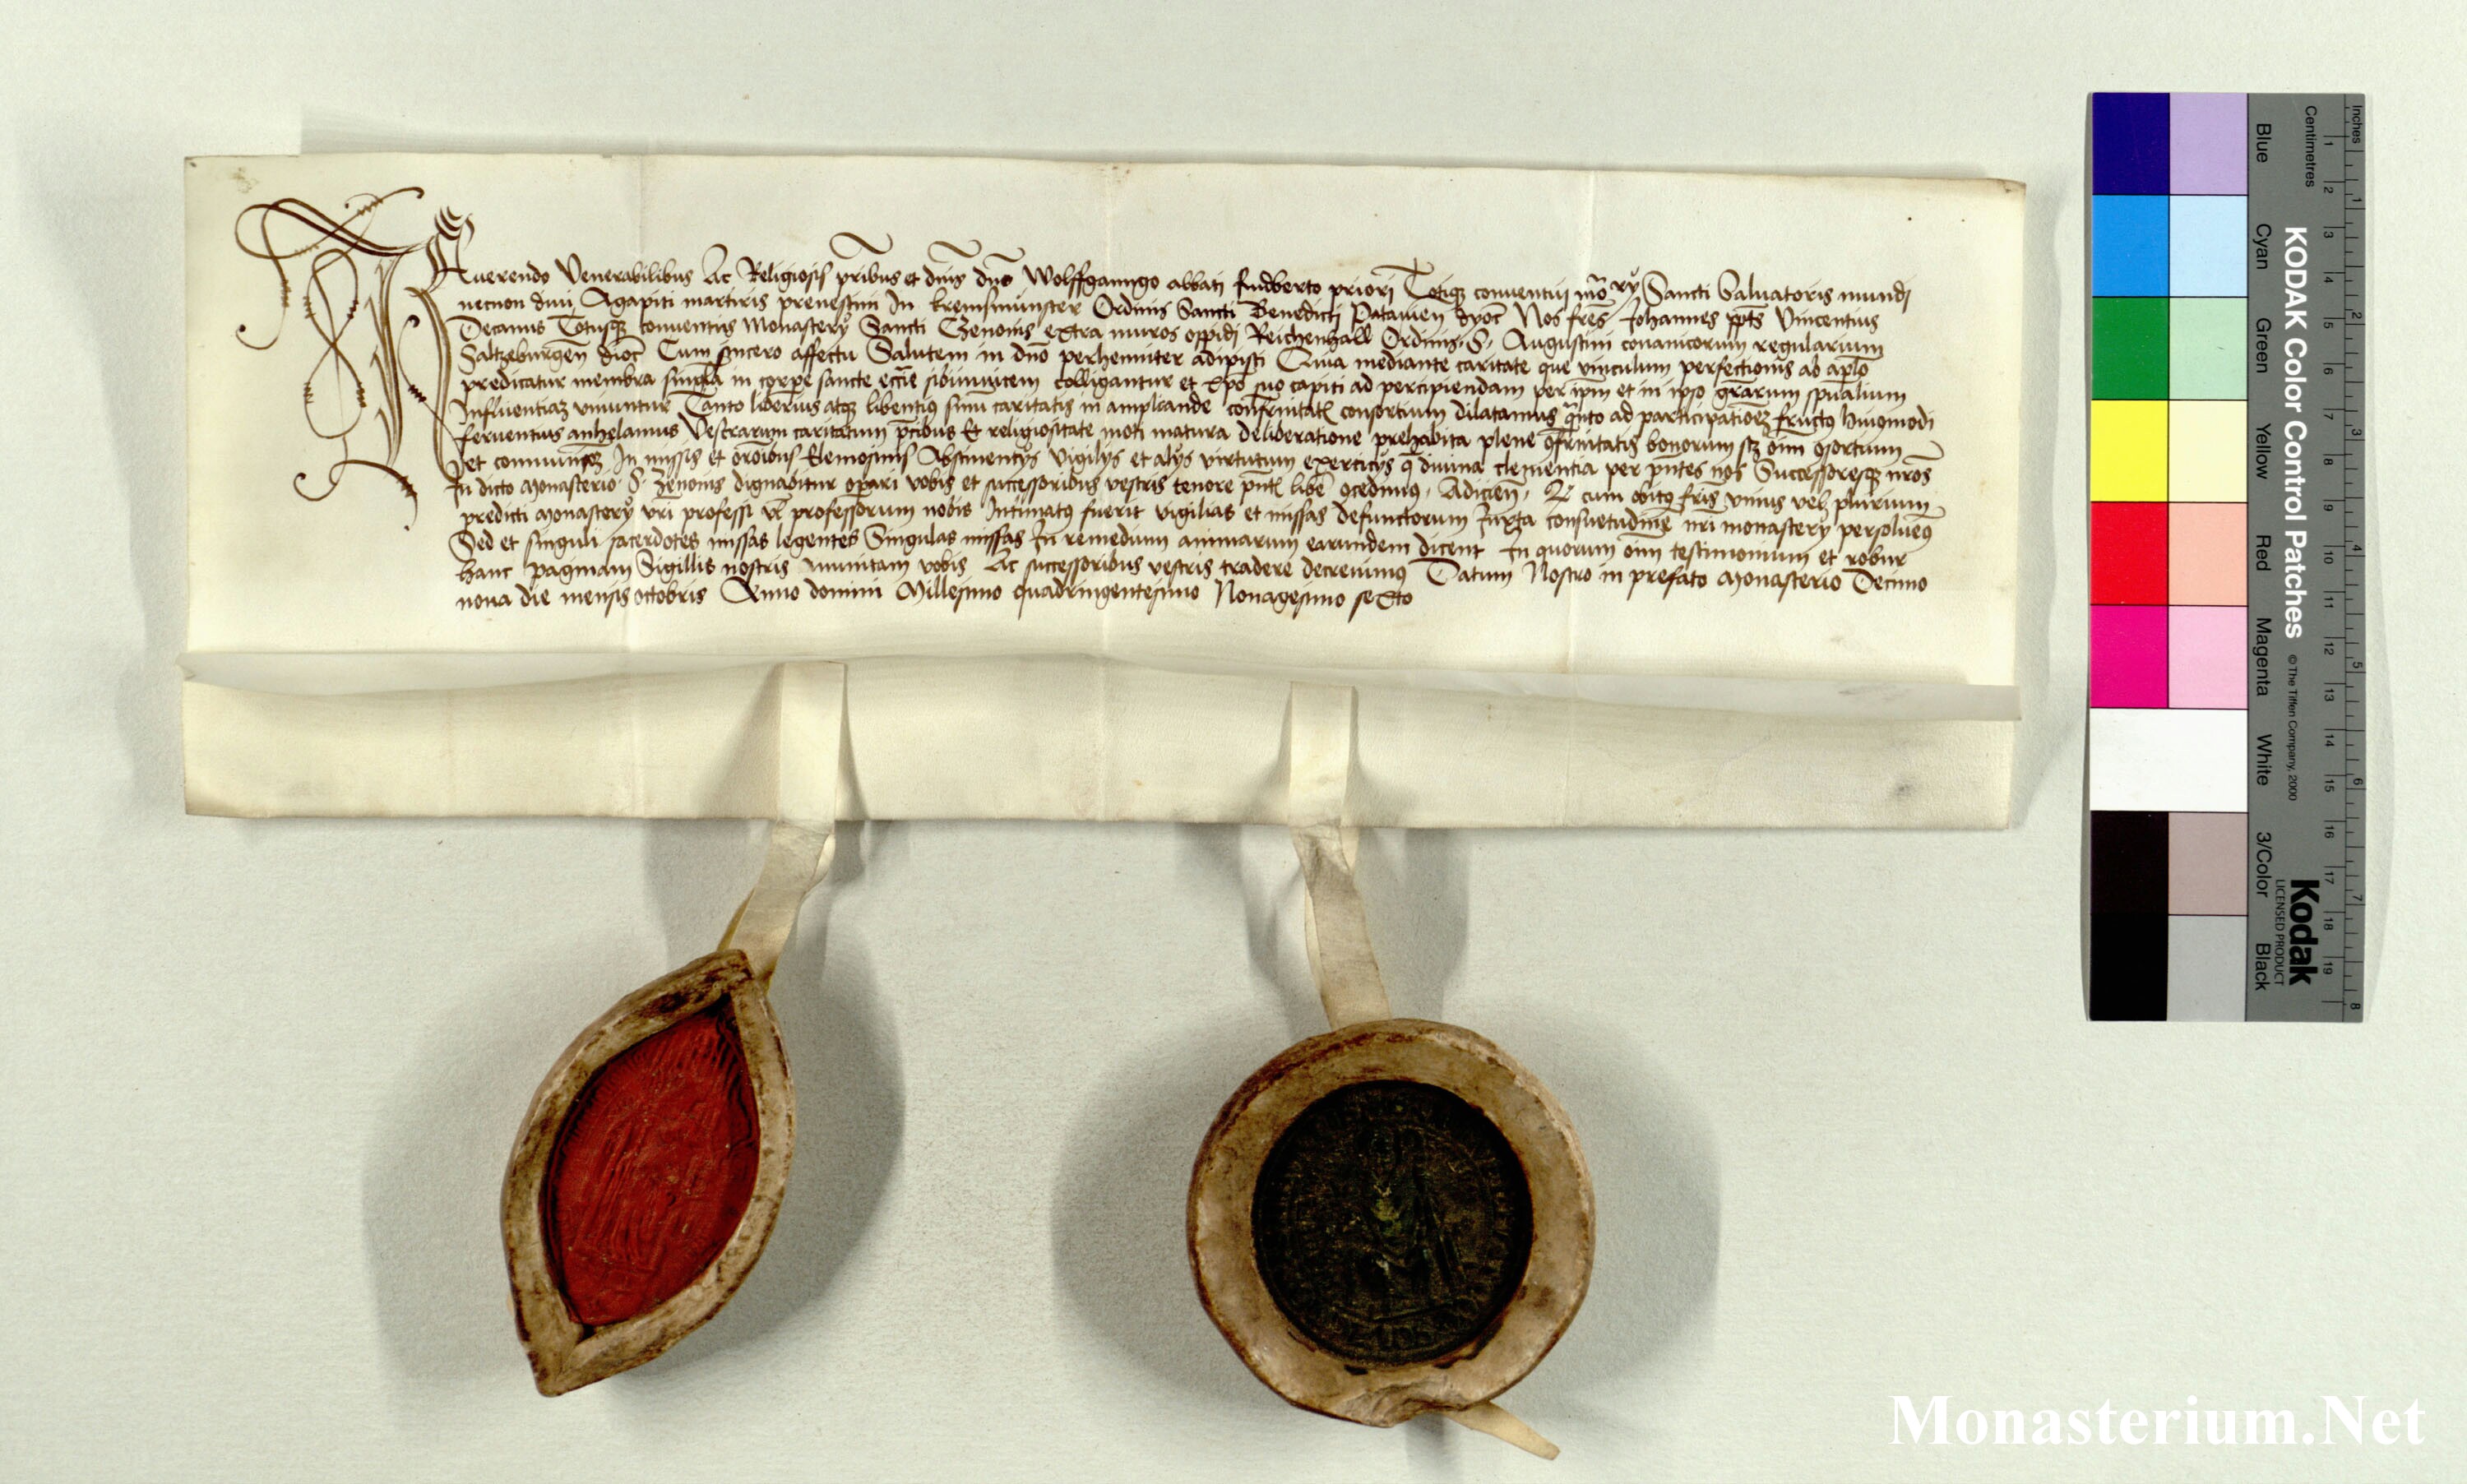 Reuerendo Venerabilibus Ac Religiosis pribus et dnis dno Wolffganngo abbati priori Totiqz conuentui Sancti Saluatoris mundi
necnon diui Agapiti martiris prenestini In kremsmünster Ordinis Sancti Benedicti Patauien dyoc Nos fres Johannes ppts Vincentius
Decanus Totusqz conuentus Monastery Sancti Czenonis extra muros oppidi Reichenhall Ordinis S. Augustini canonicorum regularium
Saltzeburgen dioc Cum sincero affectu Salutem in dno perhenniter adipisci Quia mediante caritate que vinculum perfectionis ab aplo
predicatur membra singla in corpe sancte eccie sibiinuicem colligantur et xpo suo capiti ad percipiendam per ipm et in ipso grarum spualium
Influentiaz vniuntur Tanto liberius atqz libentius sinum caritatis in ampliande confrnitatis consortium dilatamus qnto ad participatioez fructus huiusmodi
feruentius anhelamus Vestrarum caritatum pcibus Et religiositate moti matura deliberatione prehabita plene confrnitatis bonorum oim consortium
et communionem In missis et oroibus Elemosinis Abstinentys Vigilys et alys virtutum exercitys que diuina clementia per pntes nos Successoresqz nros
In dicto Monasterio S. Zenonis dignabitur opari vobis et successoribus vestris tenore pnt libe concedimus, Adicien, cum obitus fris vnius vel plurium
predicti Monastery vri professi vl professorum nobis Intimatus fuerit vigilias et missas defunctorum Iuxta consuetudinem nri monastery persoluemus
Sed et singuli sacerdotes missas legentes Singulas missas In remedium animarum earundem dicent In quorum oim testimonium et robur
hanc paginam Sigillis nostris munitam vobis Ac successoribus vestris tradere decreuimus Datum Nostro in prefato Monasterio Decimo
nona die mensis octobris Anno domini Millesimo quadringentesimo Nonagesimo sexto
KODAK Color Control Patches © The Tiffen Company, 2000
Kodak
LICENSED PRODUCT
Inches 1 2 3 4 5 6 7 8
Centimetres 1 2 3 4 5 6 7 8 9 10 11 12 13 14 15 16 17 18 19
Blue
Cyan
Green
Yellow
Red
Magenta
White
3/Color
Black
Monasterium.Net